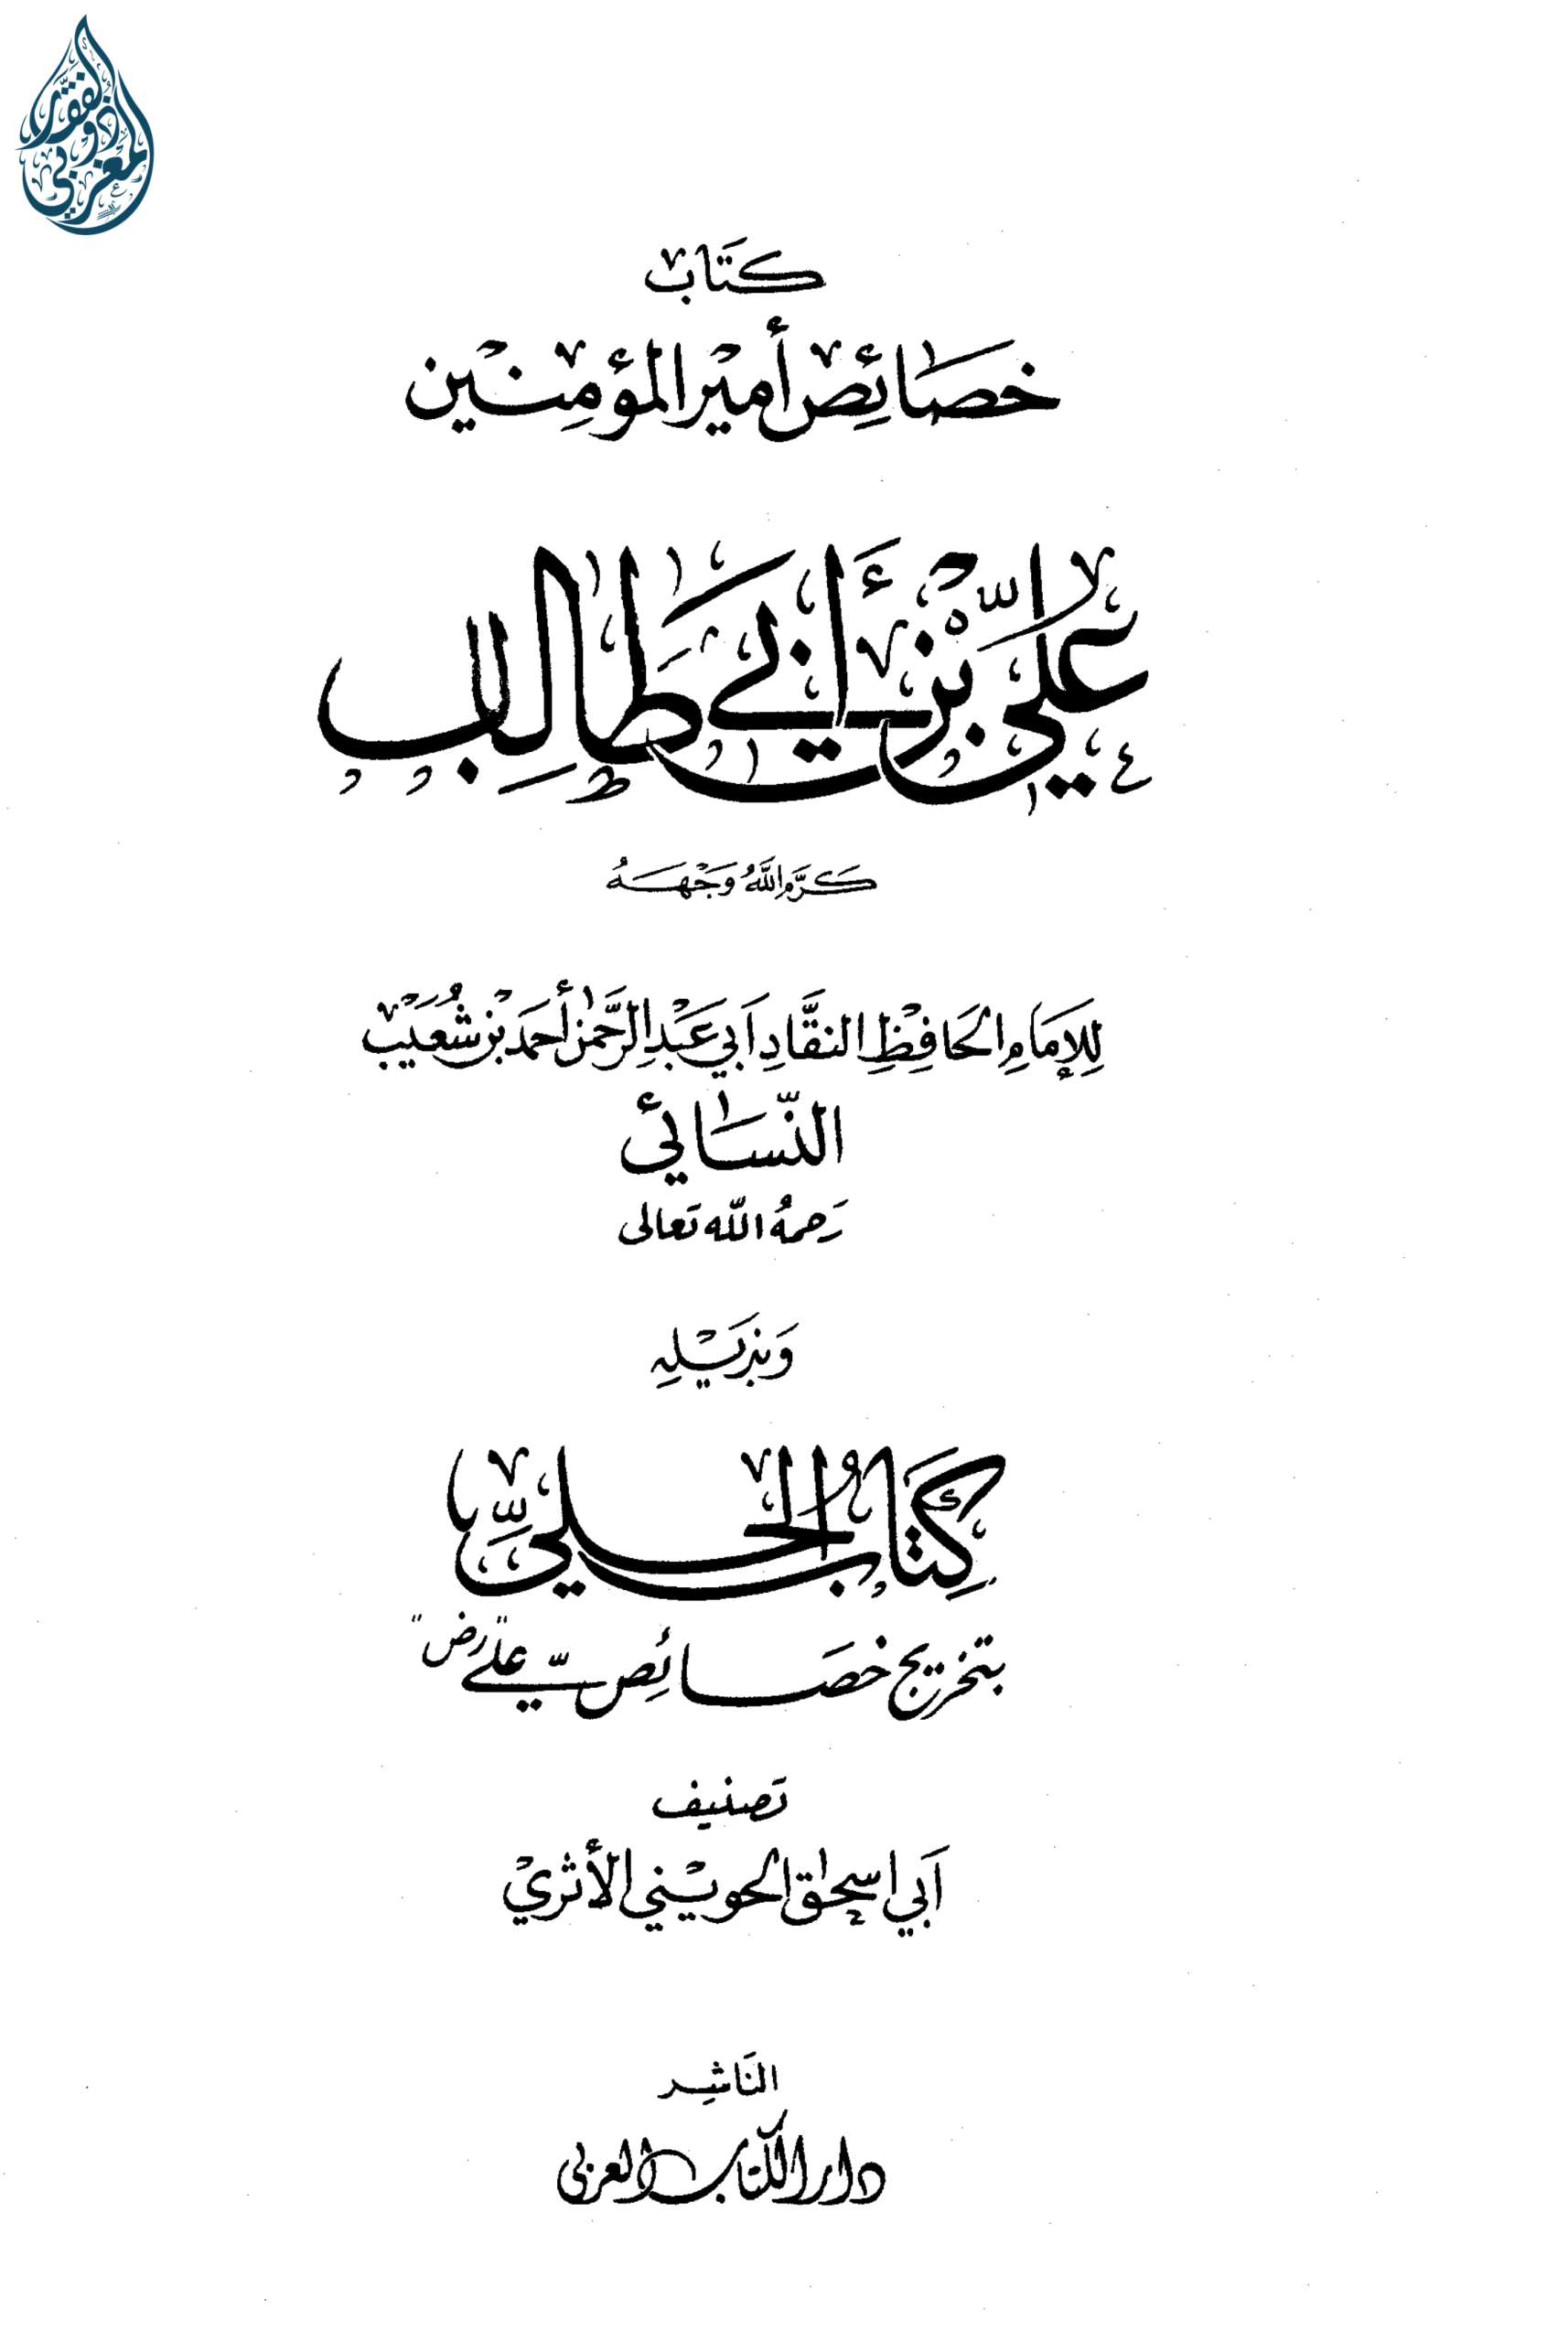 كتاب
خصائص أمير المؤمنين
علي بن أبي طالب
كرم الله وجهه
للإمام الحافظ النقاد أبي عبد الرحمن أحمد بن شعيب
النسائي
رحمه الله تعالى
وبذيله
كتاب الحلي
بتخريج خصائص علي "رض"
تصنيف
أبي اسحاق الحويني الأثري
الناشر
دار الكتاب العربي